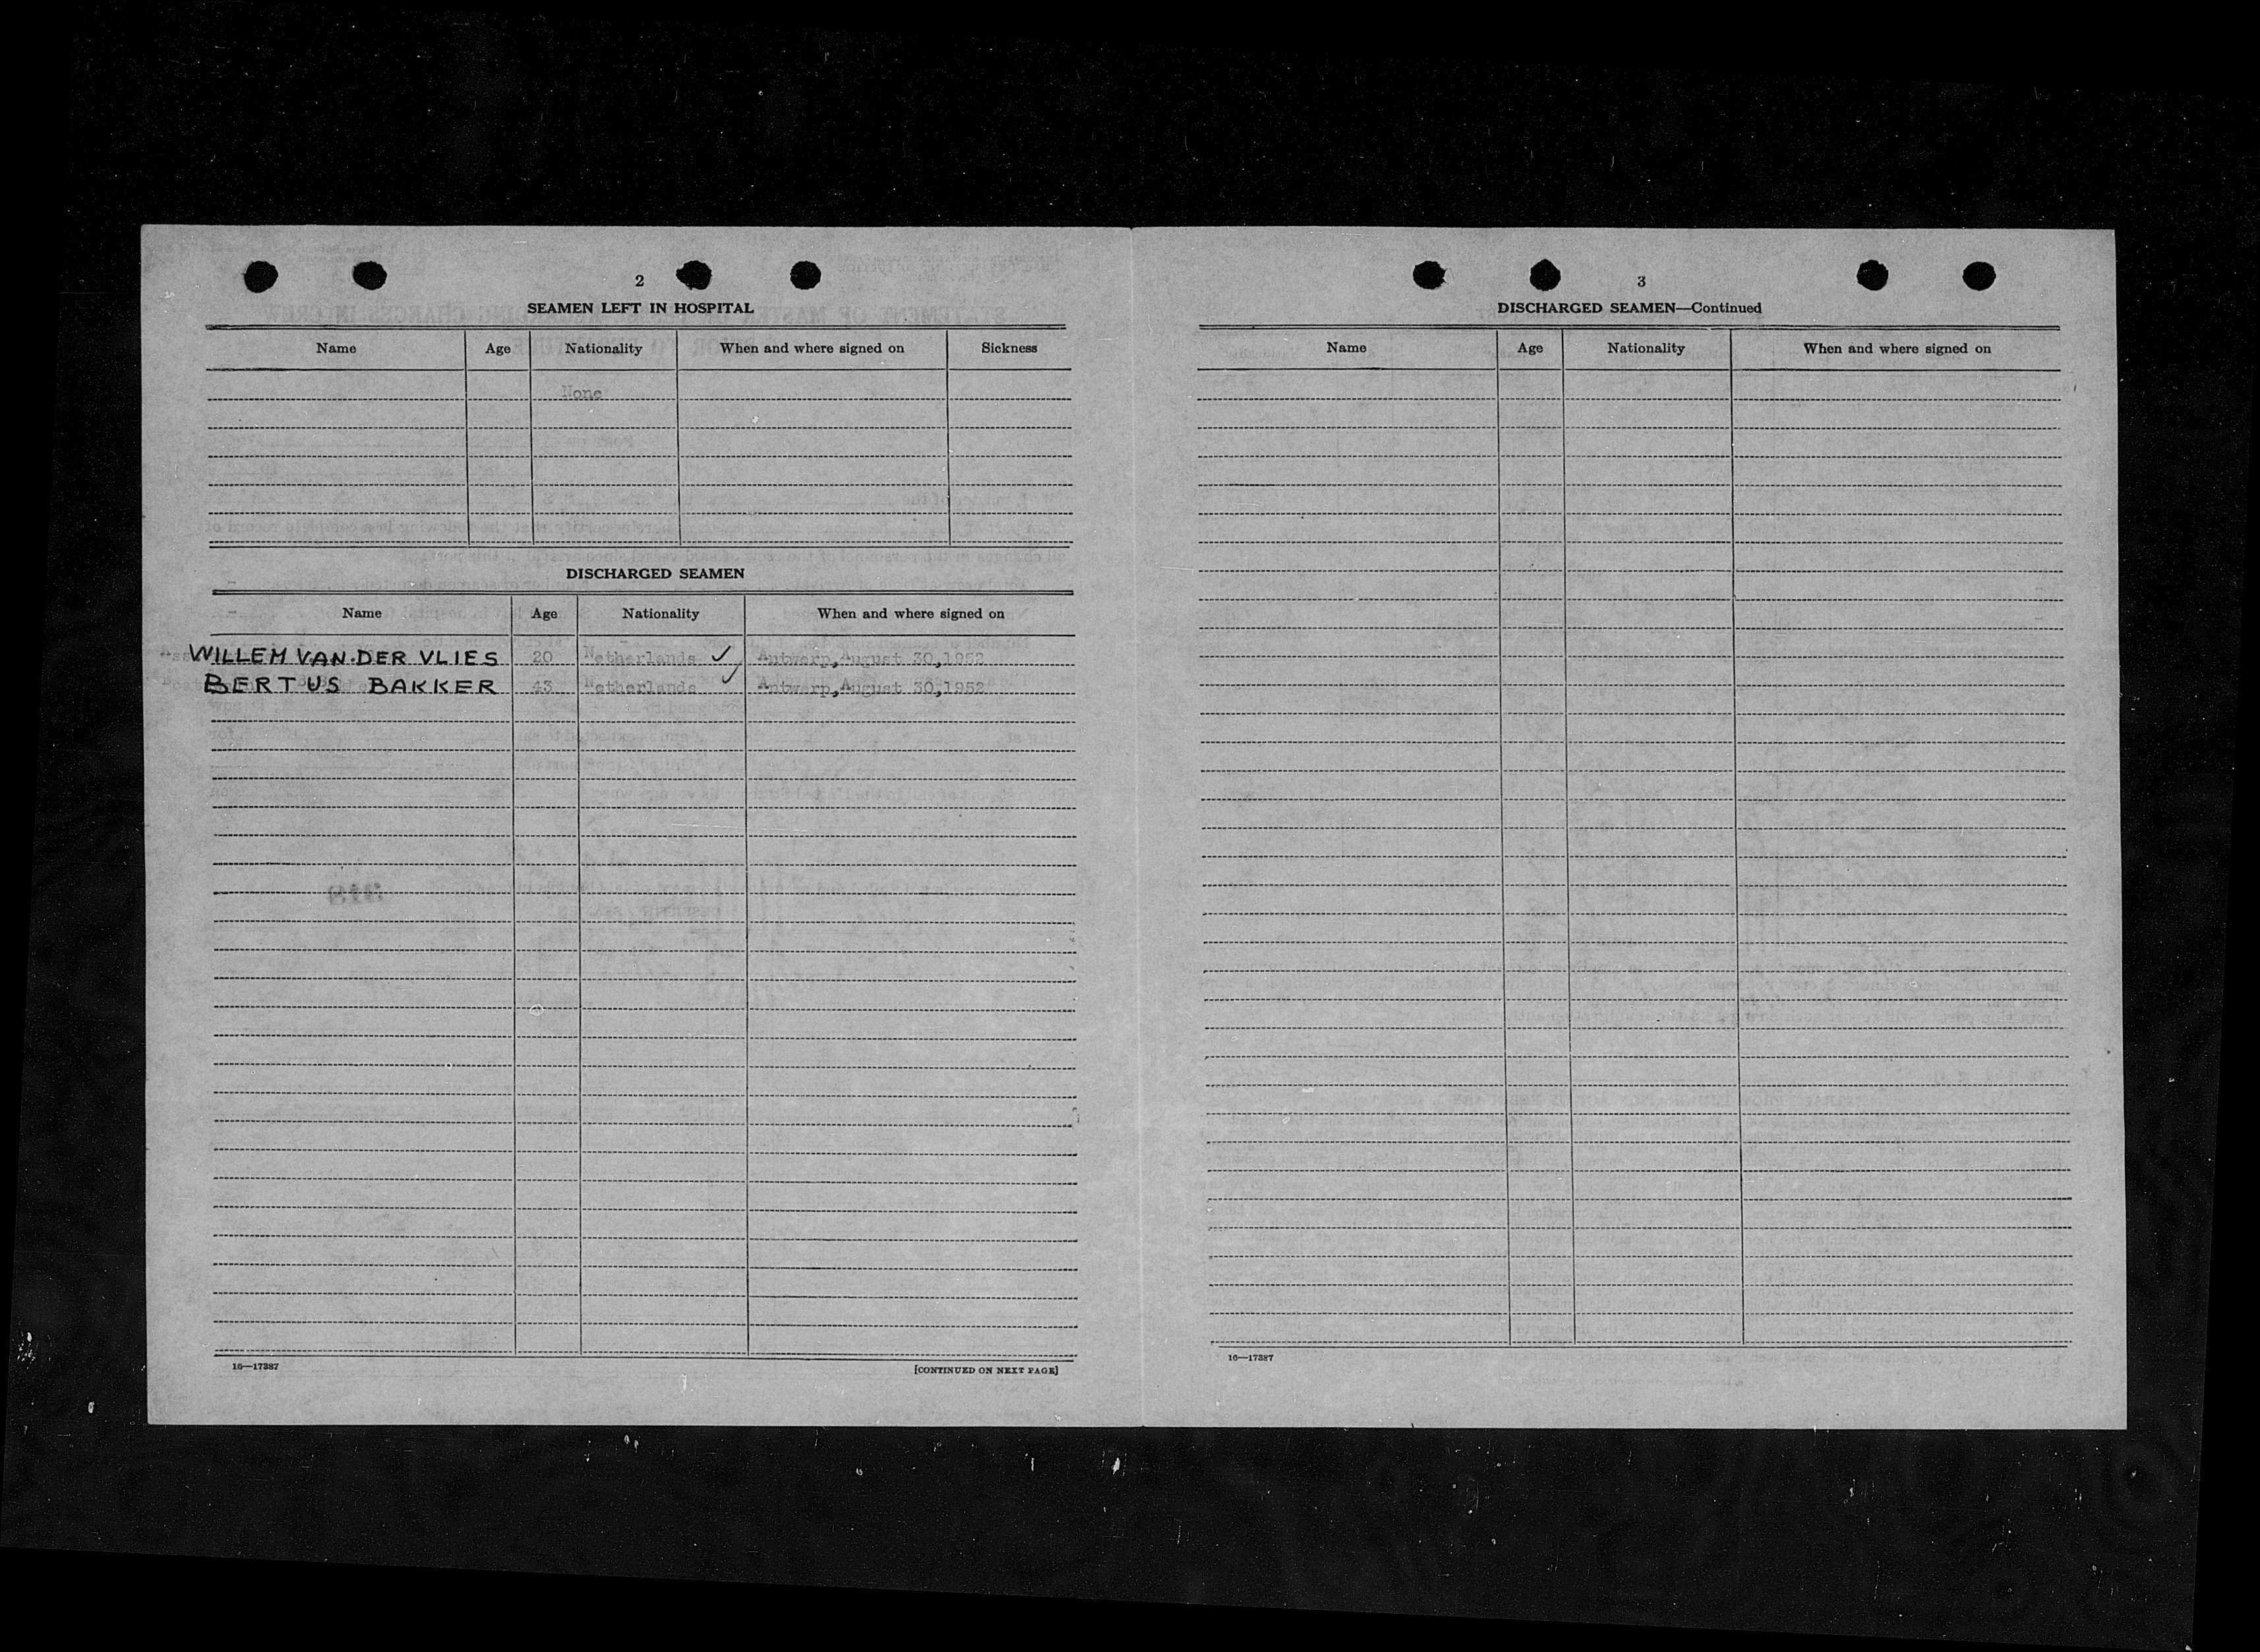 2
SEAMEN LEFT IN HOSPITAL
Name Age Nationality When and where signed on Sickness
None
DISCHARGED SEAMEN
Name Age Nationality When and where signed on
WILLEM VAN DER VLIES 20 Netherlands ✓ Antwerp,August 30,1952
BERTUS BAKKER 43 Netherlands ✓ Antwerp,August 30,1952
16—17387
[CONTINUED ON NEXT PAGE]
3
DISCHARGED SEAMEN—Continued
Name Age Nationality When and where signed on
16—17387